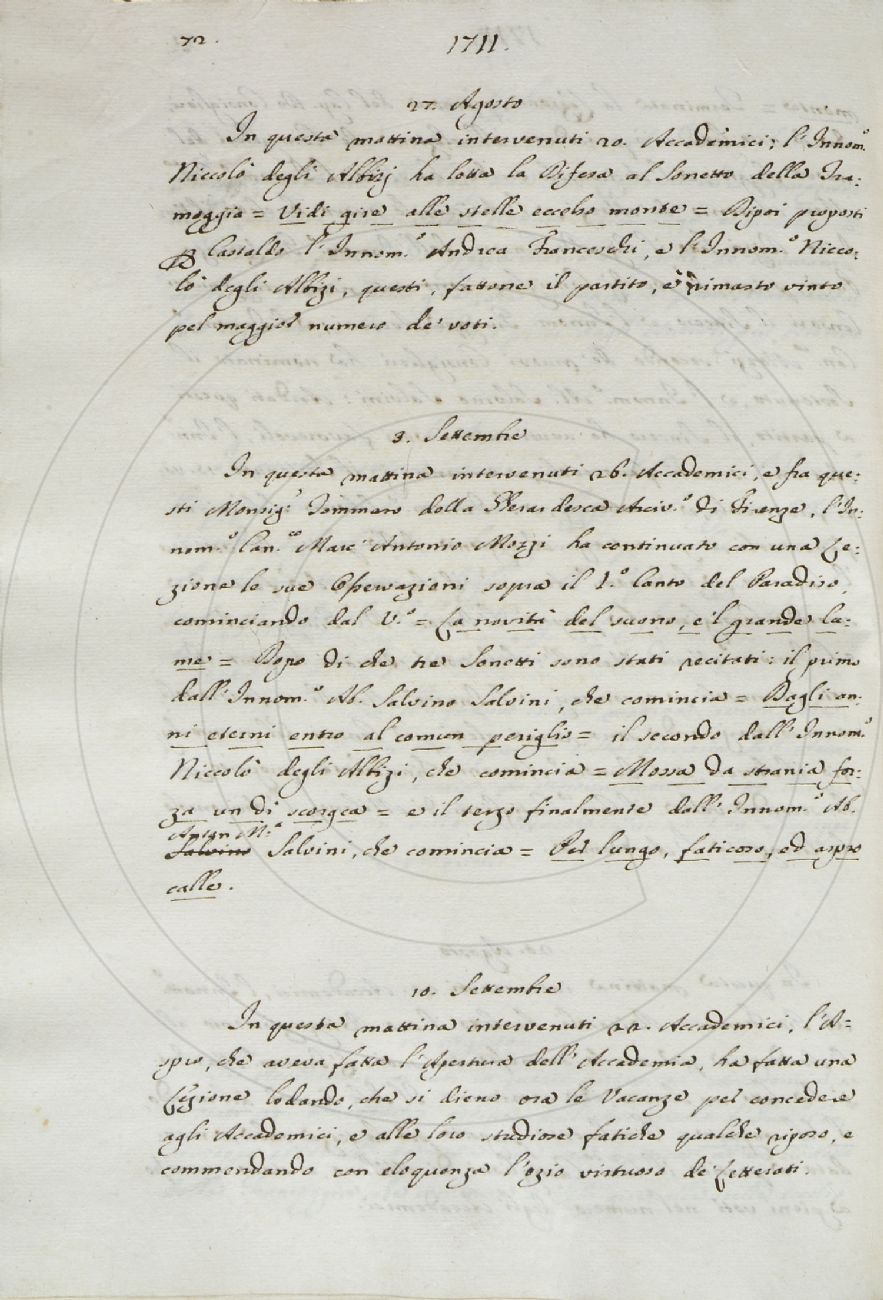 72.
1711.
27. Agosto
In questa mattina intervenuti 20. Accademici; l'Innom.º
Niccolò degli Albizj ha letta la Difesa al Sonetto della Tra-
moggia = Vidi gire alle stelle eccelso monte = Dipoi proposti
Castaldo l'Innom.º Andrea Franceschi, e l'Innom.º Nicco-
lò degli Albizi, questi, fattone il partito, è rimasto vinto
pel maggior numero de' voti.
3. Settembre
In questa mattina intervenuti 26. Accademici, e fra que-
sti Monsig.r Tommaso della Gherardesca Arciv.º di Firenze, l'In-
nom.º Can.co Marc' Antonio Mozzi ha continuato con una Le-
zione le sue Osservazioni sopra il 1.º Canto del Paradiso,
cominciando dal V.º = La novità del suono, e'l grande lu-
me = Dopo di che tre Sonetti sono stati recitati: il primo
dall'Innom.º Ab. Salvino Salvini, che comincia = Dagli an-
ni eterni entro al comun periglio = il secondo dall'Innom.º
Niccolò degli Albizi, che comincia = Mossa da strania for-
za un dì scorgea = e il terzo finalmente dall'Innom.º Ab.
Anton M.ª
Salvino Salvini, che comincia = Pel lungo, faticoso, ed aspro
calle.
10. Settembre
In questa mattina intervenuti 22. Accademici, l'A=
spro, che aveva fatta l'Apertura dell'Accademia, ha fatta una
Lezione lodando, che si dieno ora le Vacanze pel concedere
agli Accademici, e alle loro studiose fatiche qualche riposo, e
commendando con eloquenza l'ozio virtuoso de' Letterati.